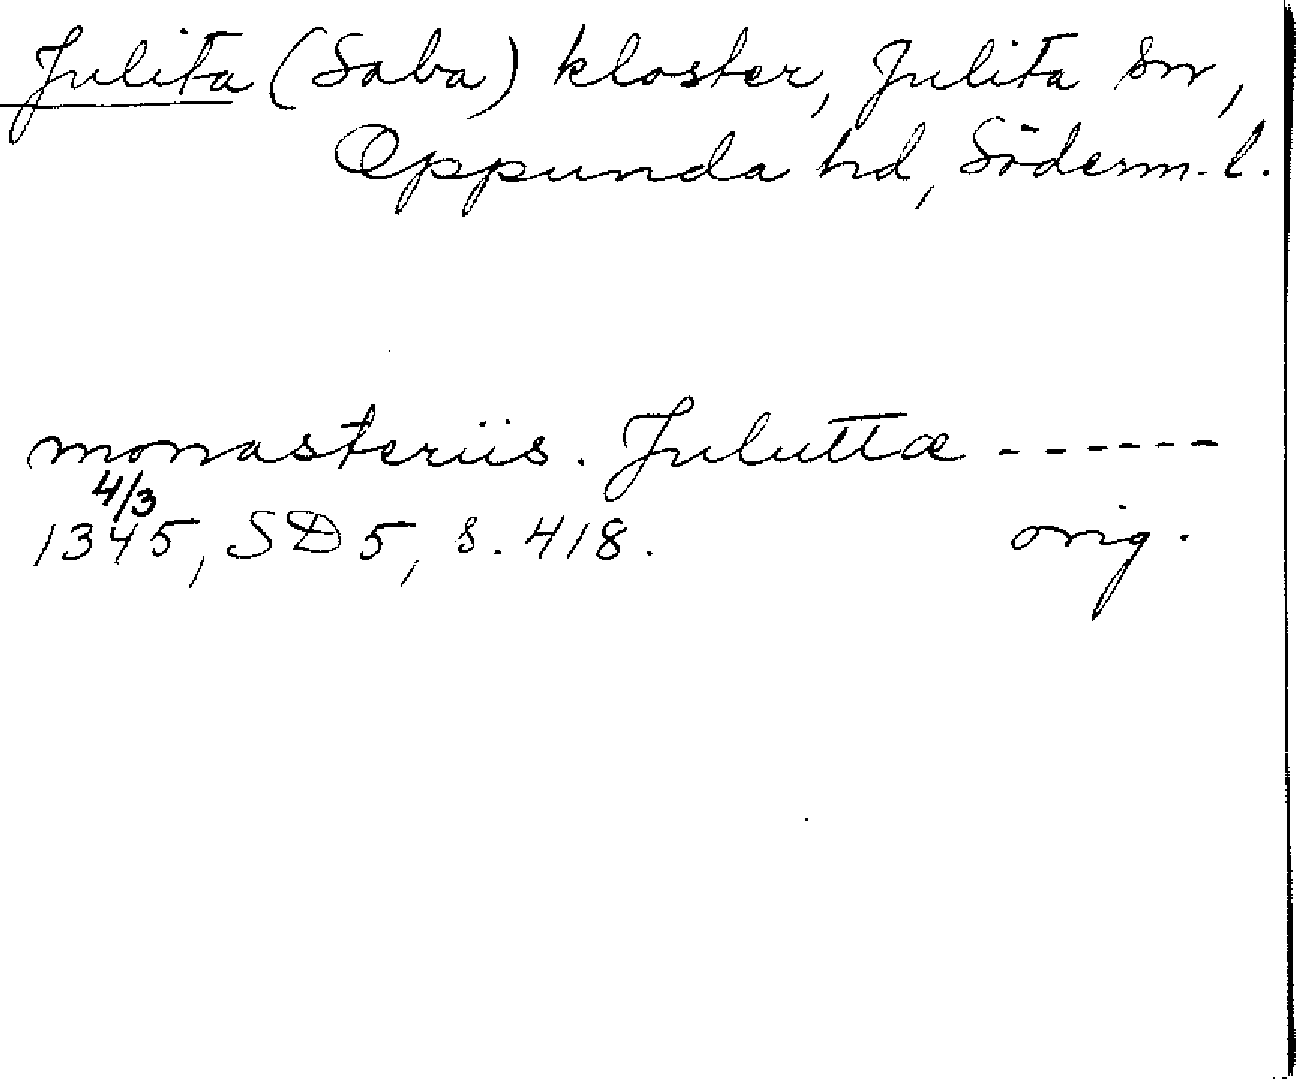 Julita (Saba) kloster, Julita sn,
Oppunda hd, Söderm. l.
monasteriis. Juluttæ - - - - - -
4/3
1345, SD 5, s. 418. orig.